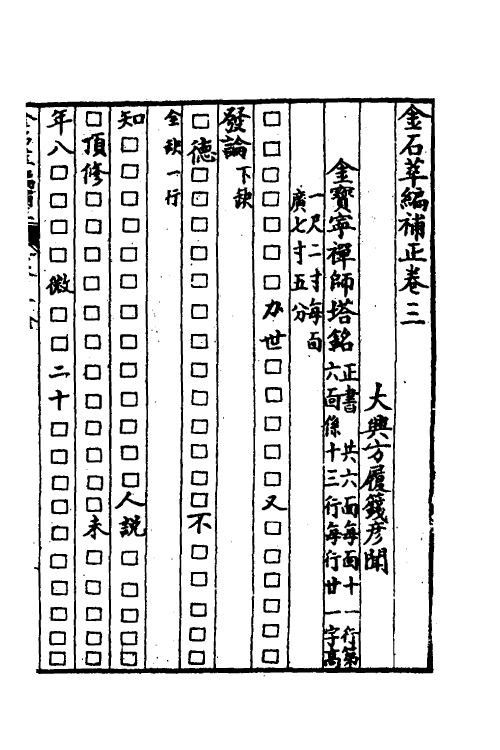 金石萃編補正卷三
大興方履籛彥聞
金寶寧禪師塔銘 正書 共六面每面十一行第六面係十三行每行廿一字高
一尺二寸每面廣七寸五分
□□□□□□□力世□□□□□又□□□□□□
發論下缺
□德□□□□□□□□□□□□不□□□□□
全缺一行
知□□□□□□□□□□□□□人說□□□□□
□頂修□□□□□□□□□□□□未□□□□□
年八□□□□□微□□二十□□□□□□□□□□